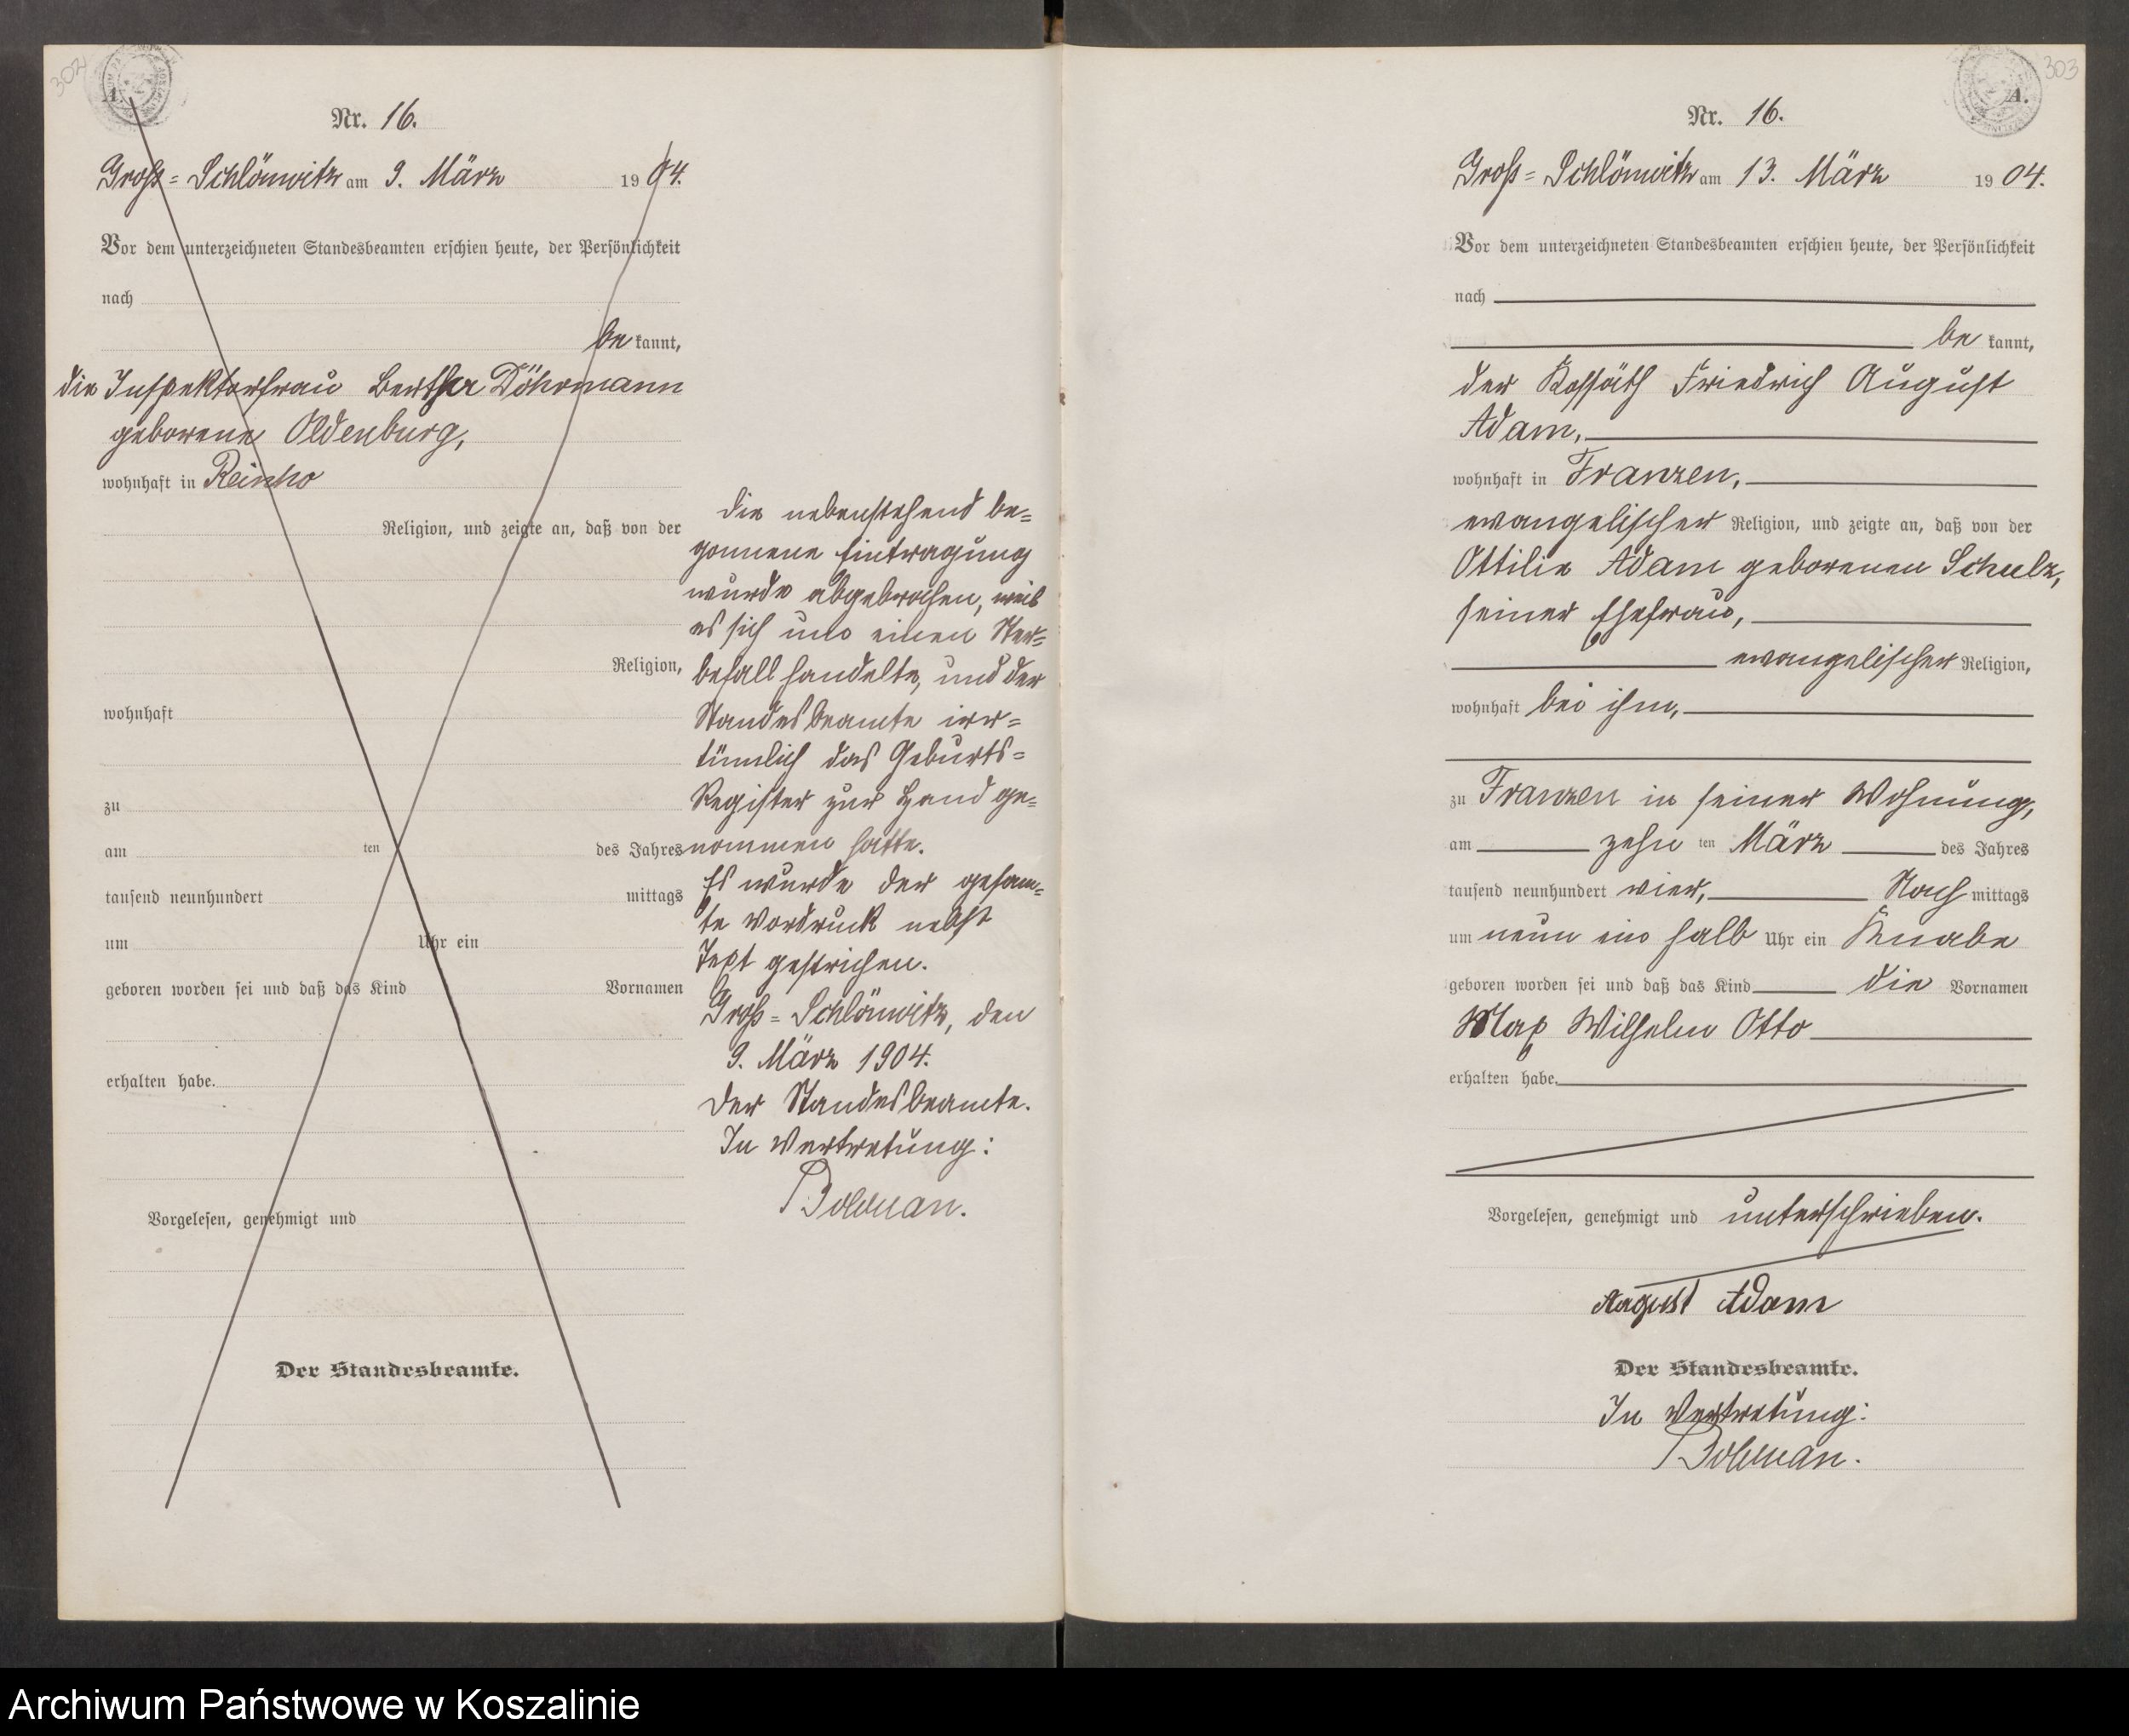 302
A.
Nr. 16.
Groß=Schlönwitz am 9. März 1904.
Vor dem unterzeichneten Standesbeamten erschien heute, der Persönlichkeit
nach
be kannt,
die Inspektorfrau Bertha Döhrmann
geborene Oldenburg,
wohnhaft in
Religion, und zeigte an, daß von der
Religion,
wohnhaft
zu
am ten des Jahres
tausend neunhundert mittags
um Uhr ein
geboren worden sei und daß das Kind Vornamen
erhalten habe.
Vorgelesen, genehmigt und
Der Standesbeamte.
Die nebenstehend be=
gonnene Eintragung
wurde abgebrochen, weil
es sich um einen Ster=
befall handelte, und der
Standesbeamte irr=
tümlich das Geburts=
Register zur Hand ge=
nommen hatte.
Es wurde der gesam=
te Vordruck nebst
Text gestrichen.
Groß=Schlönwitz, den
9. März 1904.
Der Standesbeamte.
In Vertretung:
303
A.
Nr. 16.
Groß=Schlönwitz am 13. März 1904.
Vor dem unterzeichneten Standesbeamten erschien heute, der Persönlichkeit
nach
be kannt,
der Kossäth Friedrich August
Adam,
wohnhaft in Franzen,
evangelischer Religion, und zeigte an, daß von der
Ottilie Adam geborenen Schulz,
seiner Ehefrau,
evangelischer Religion,
wohnhaft bei ihm,
zu Franzen in seiner Wohnung,
am zehn ten März des Jahres
tausend neunhundert vier, Nach mittags
um neun ein halb Uhr ein Knabe
geboren worden sei und daß das Kind die Vornamen
Max Wilhelm Otto
erhalten habe.
Vorgelesen, genehmigt und unterschrieben.
August Adam
Der Standesbeamte.
In Vertretung:
Archiwum Państwowe w Koszalinie